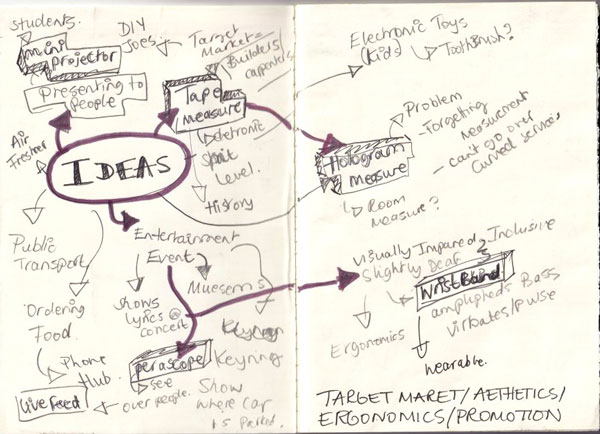 Students.
mini
projector
Presenting to
People
DIY
Joes
Target
Market
Builders/
carpenters
Tape
measure
electronic
level.
History
Air
Freshner
IDEAS
Public
Transport
Entertainment
Event
Museems
Shows
lyrics @
concert
Ordering
Food
Phone
Hub
Live Feed
perascope
see
over people.
Keyring
Show
where car
is parked.
Electronic Toys
Kids
ToothBrush?
Problem
-Forgetting
measurment
- can't go over
curved services
Hologram
measure
Room
measure?
Visually Impared
Slightly Deaf
Inclusive
WristBand
amplipheds Bass
Virbates/Pulse
Ergonomics
wearable.
TARGET MARET/AETHETICS/
ERGONOMICS/PROMOTION